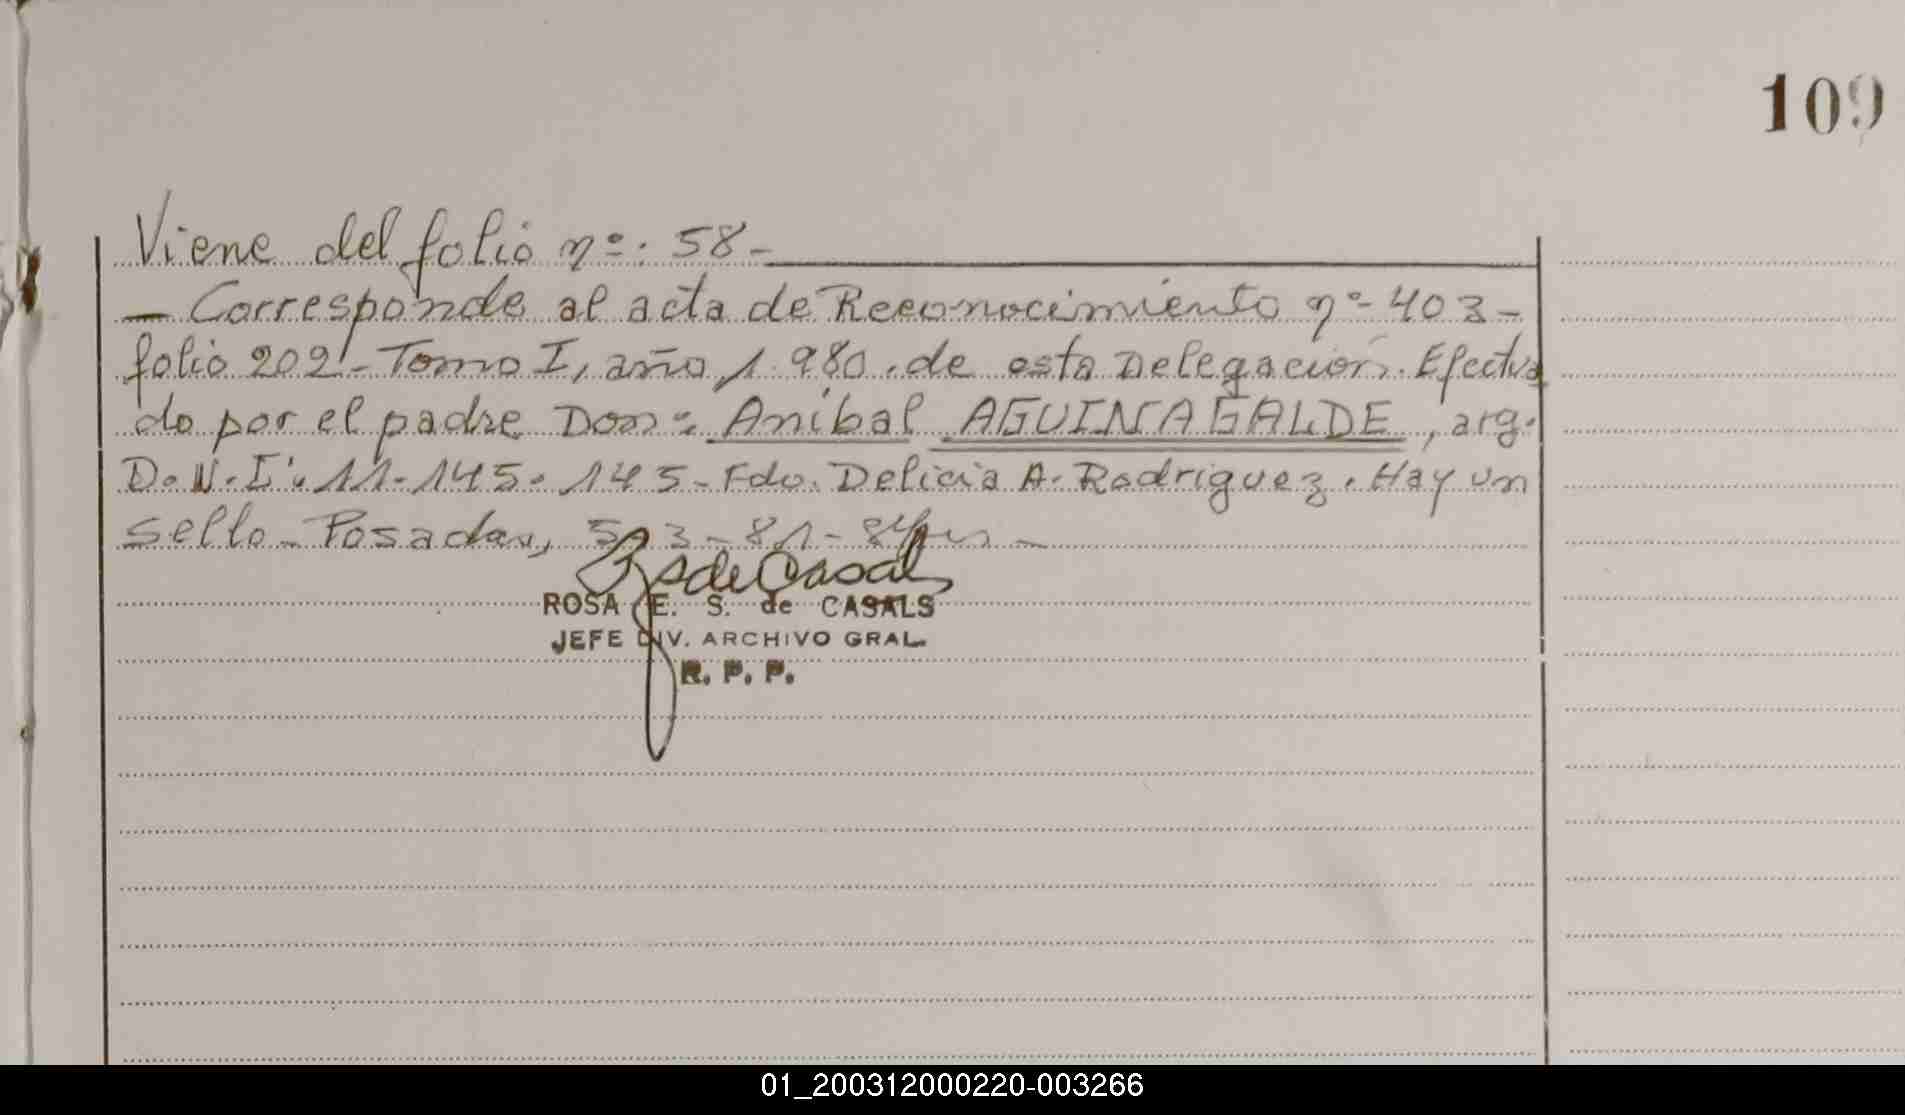 109
Viene del folio nº: 58-
- Corresponde al acta de Reconocimiento nº 403-
folio 202 - Tomo I, año 1.980. de esta Delegación. Efectua
do por el padre Don: Anibal AGUINAGALDE, arg.
D.N.I. 11.145.145 - Fdo. Delicia A. Rodriguez. Hay un
sello - Posadas, 5-3-81-
ROSA E. S. de CASALS
JEFE DIV. ARCHIVO GRAL.
R. P. P.
01_200312000220-003266